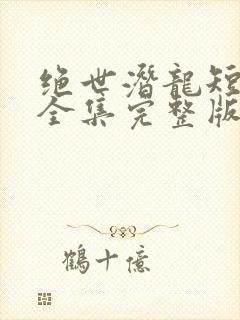 绝世潜龍短
全集完整版
鶴十億